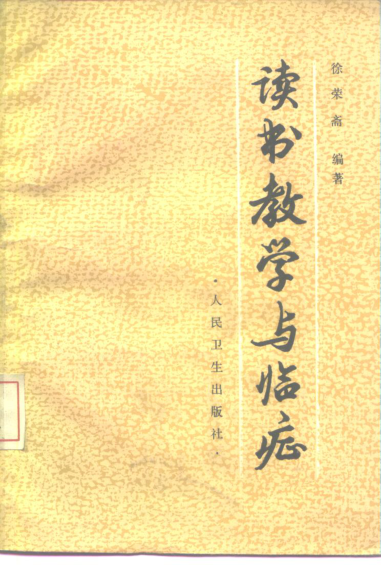 徐荣斋 编著
读书教学与临症
·人民卫生出版社·